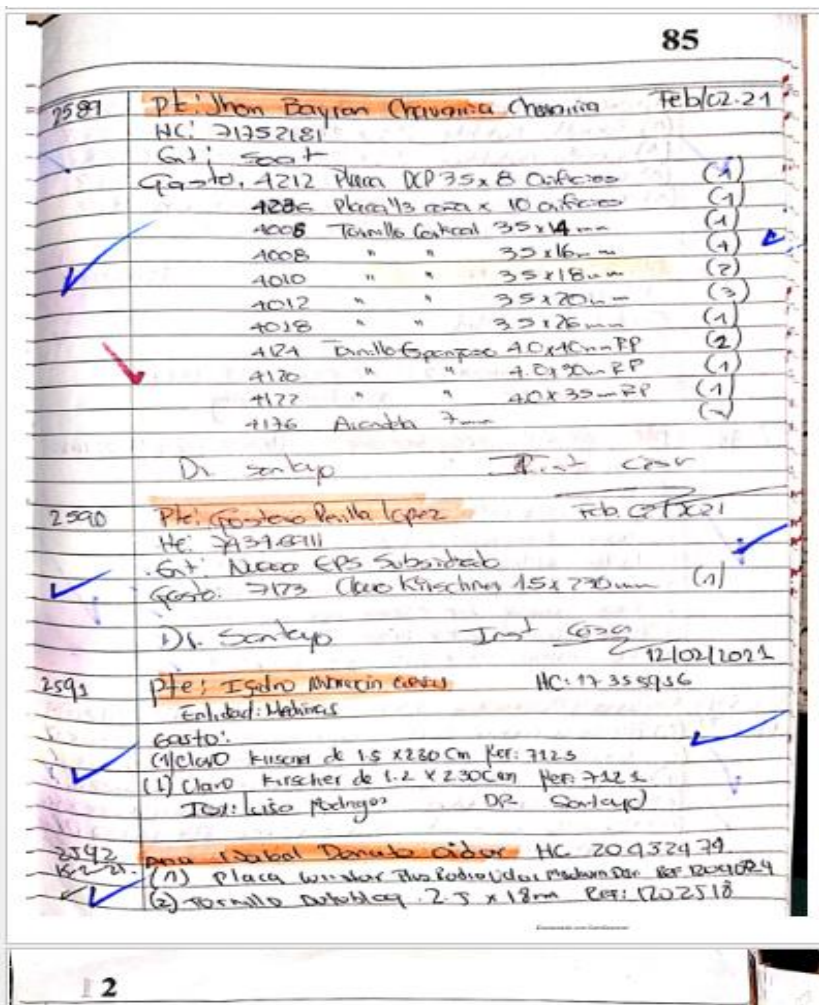 85
2589 Pte: Jhon Bayron Chavarria Chavarria Feb/02-21
HC: 71752181
Ent: Soat
Gasto: 4212 Placa DCP 35x8 Orificios (1)
4286 Placa 1/3 caña x 10 orificios (1)
4006 Tornillo Cortical 35x14mm (1)
4008 " " 35x16mm (1)
4010 " " 35x18mm (2)
4012 " " 35x20mm (3)
4018 " " 35x26mm (1)
4124 Tornillo Esponjoso 40x40mm RP (2)
4120 " " 4.0x30mm RP (1)
4122 " " 40x35mm RP (1)
4176 Arandela 7mm
Dr Santayo Inst Cesar
2590 Pte: Gustavo Penilla Lopez Feb 02/2021
HC:
Ent: Nueva EPS Subsidiado
Gasto: 7173 Clavo Kirschner 1.5x230mm (1)
Dr. Santayo Inst Cesar
12/02/2021
2591 Pte: Isidro HC: 17355956
Entidad: Medimas
Gasto:
(1) Clavo Kirscher de 1.5 x 230 Cm Ref: 7123
(1) Clavo Kirscher de 1.2 x 230 Cm Ref: 7121
Luis Rodrigos DR Santayo
2592 Ana Isabel Donato HC 20432479
(1) Placa Ref
(2) Tornillo 2.5 x 18mm Ref: 1202518
2